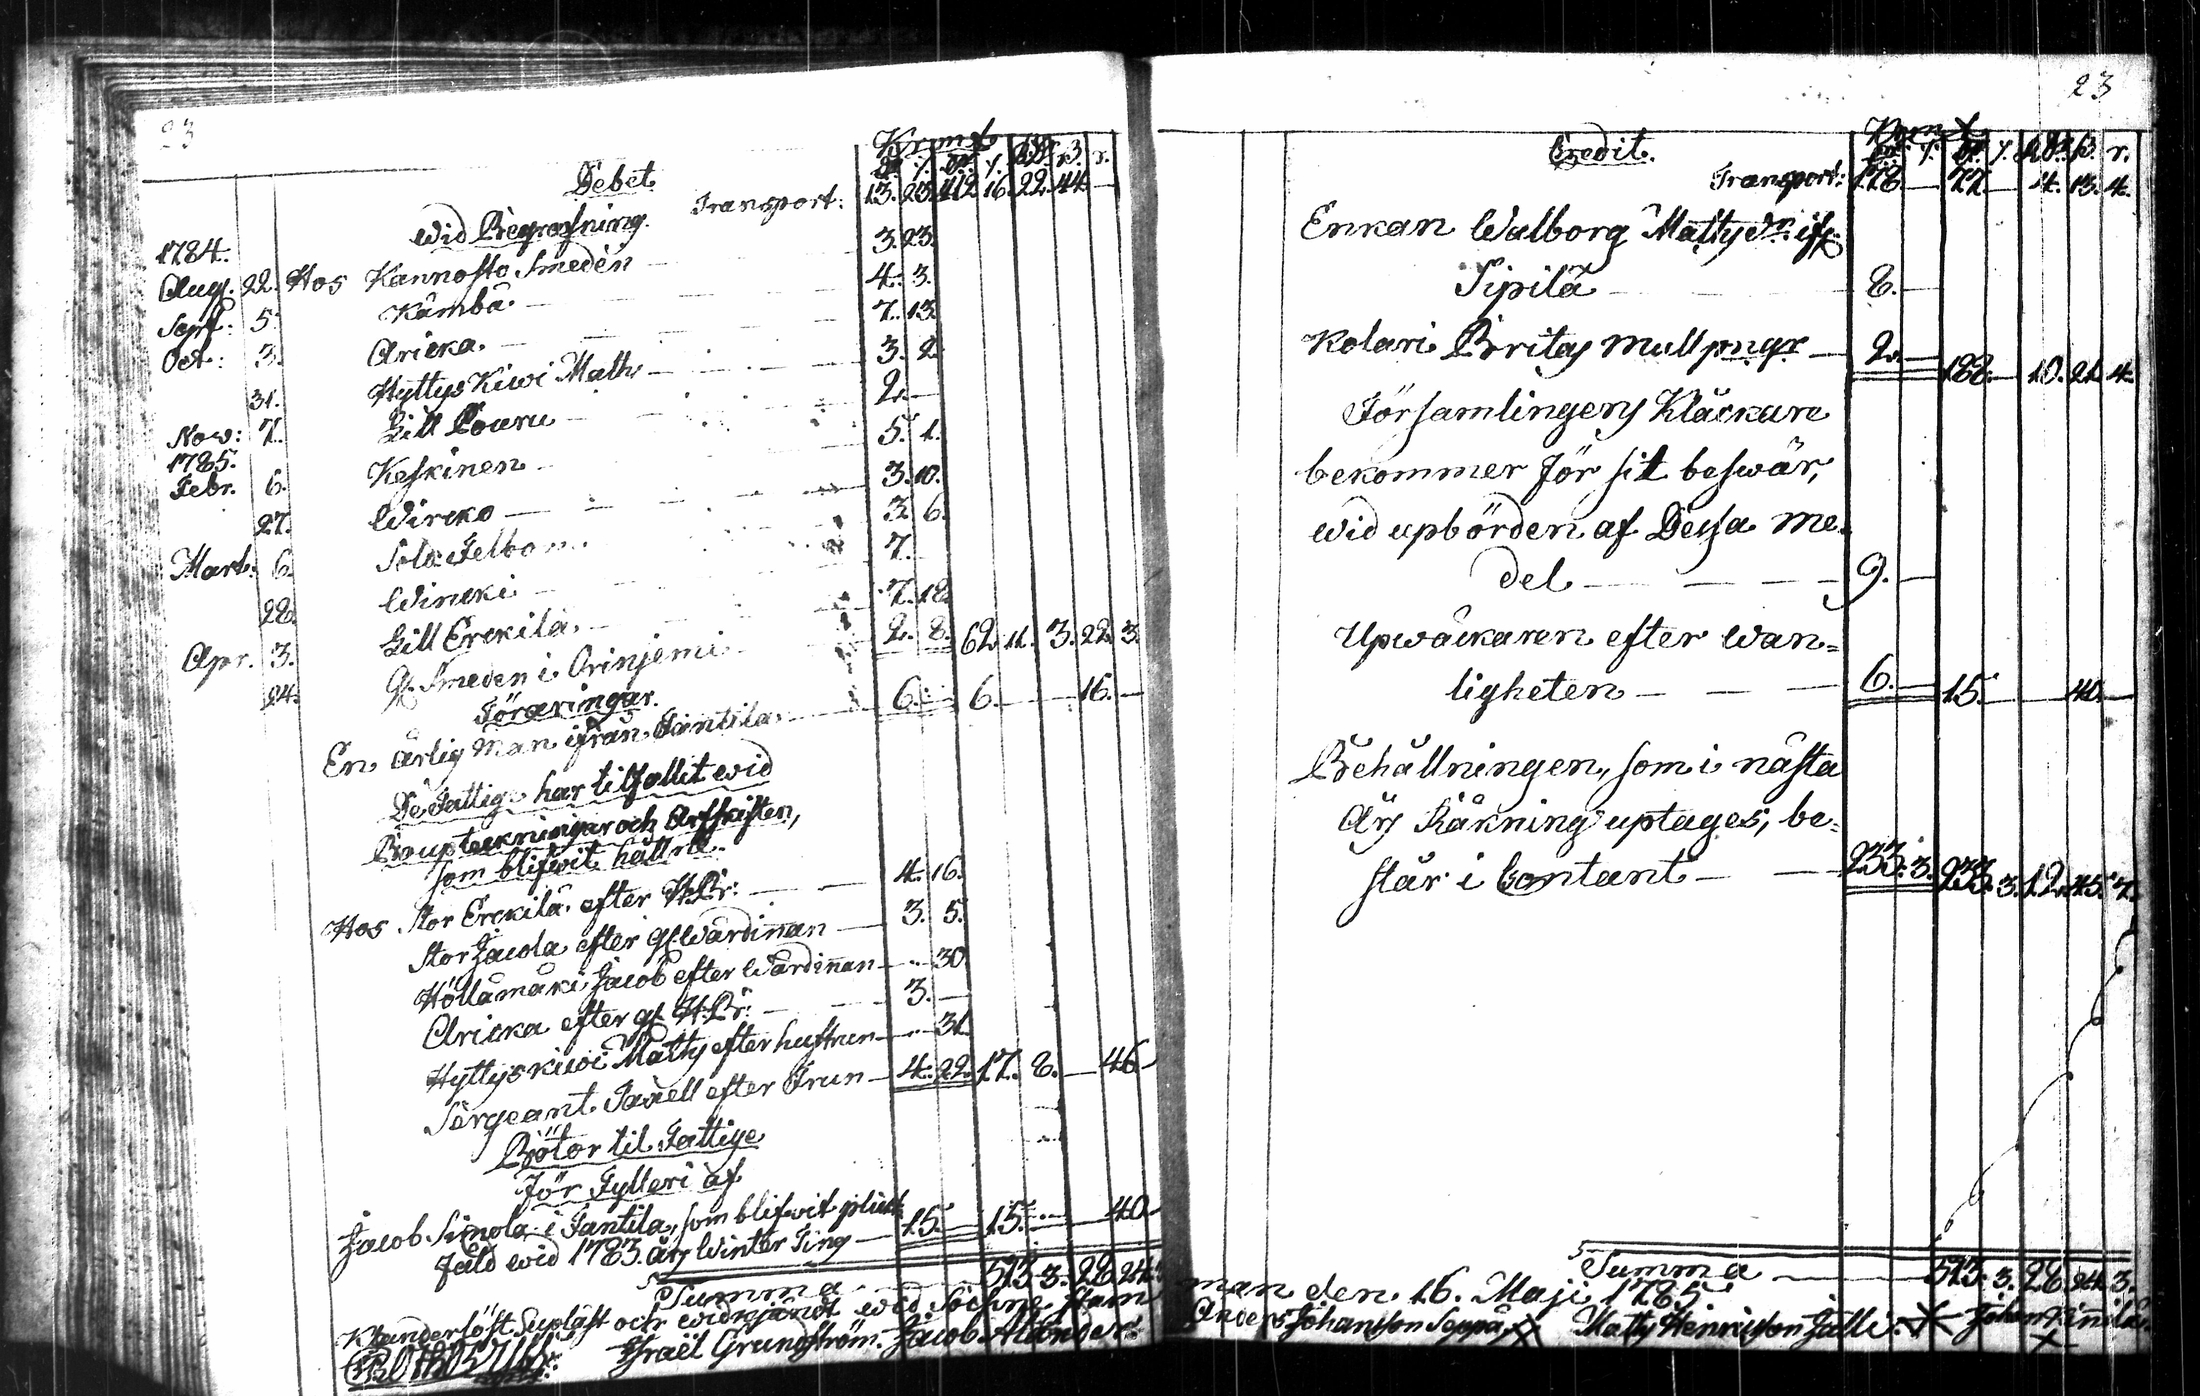 23
Debet
Transport: 13. 23. 412. 16. 22. 44. —
wid Begrafning.
1784.
Aug. 22. Hos Kannosto Smeden — 3. 23.
Sept: 5. Kämbä — 4. 3.
Oct: 3. Aricka — 7. 13.
31. Hyttys Kiwi Matts — 3. 2.
Now: 7. Lill Pouru — 2. —
1785.
Febr. 6. Keskinen — 5. 1.
27. Wircko — 3. 10.
Mart. 6. — 3. 6.
28. Wincki — 7.
Apr. 3. Lill Erckilä — 7. 18.
24. Smeden i Orinjemi — 2. 8. 62. 11. 3. 22. 3.
Föräringar.
En ärlig Man ifrån Jantila — 6. — 6. — 16. —
De Fattige har tilfallit wid
Boupteckningar och Arfskiften,
som blifwit hålln
Hos Stor Erckilä efter — 4. 16.
Stor Jacola efter wärdinnan — 3. 5.
Höllämäki Jacob efter Wärdinnan — 30.
Aricka efter — 3. —
Hyttyskiwi Matts efter hustrun — 31.
Sergeant efter Frun — 4. 22. 17. 8. — 46. —
Böter til Fattige
för Fylleri af
Jacob Simola i Jantila, som blifwit plickt
fäld wid 1783. års Winter Ting — 15. — 15. — 40. —
Summa — 513. 3. 28. 24.
Israël Grundström. Jacob
23
Credit.
Transport: 178. — 77. — 4. 13. 4.
Enkan Walborg Matts dr. ifr.
Sipilä — 8. —
Kolari Britas mullpngr — 2. — 188. — 10. 21. 4.
Församlingens Kläckare
bekommer för sit beswär,
wid upbörden af Dessa me-
del — 9. —
Upwäckaren efter wan=
ligheten — 6. — 15. — 40. —
Behållningen, som i nästa
Års Räkning uptages, be=
står i Contant — 233. 3. 233. 3. 12. 45. 7.
Summa — 513. 3. 28. 24. 3.
man den 16. Maji 1785.
Anders Johansson Seppä. X Matts Henricsson Jalli. X Johan
X